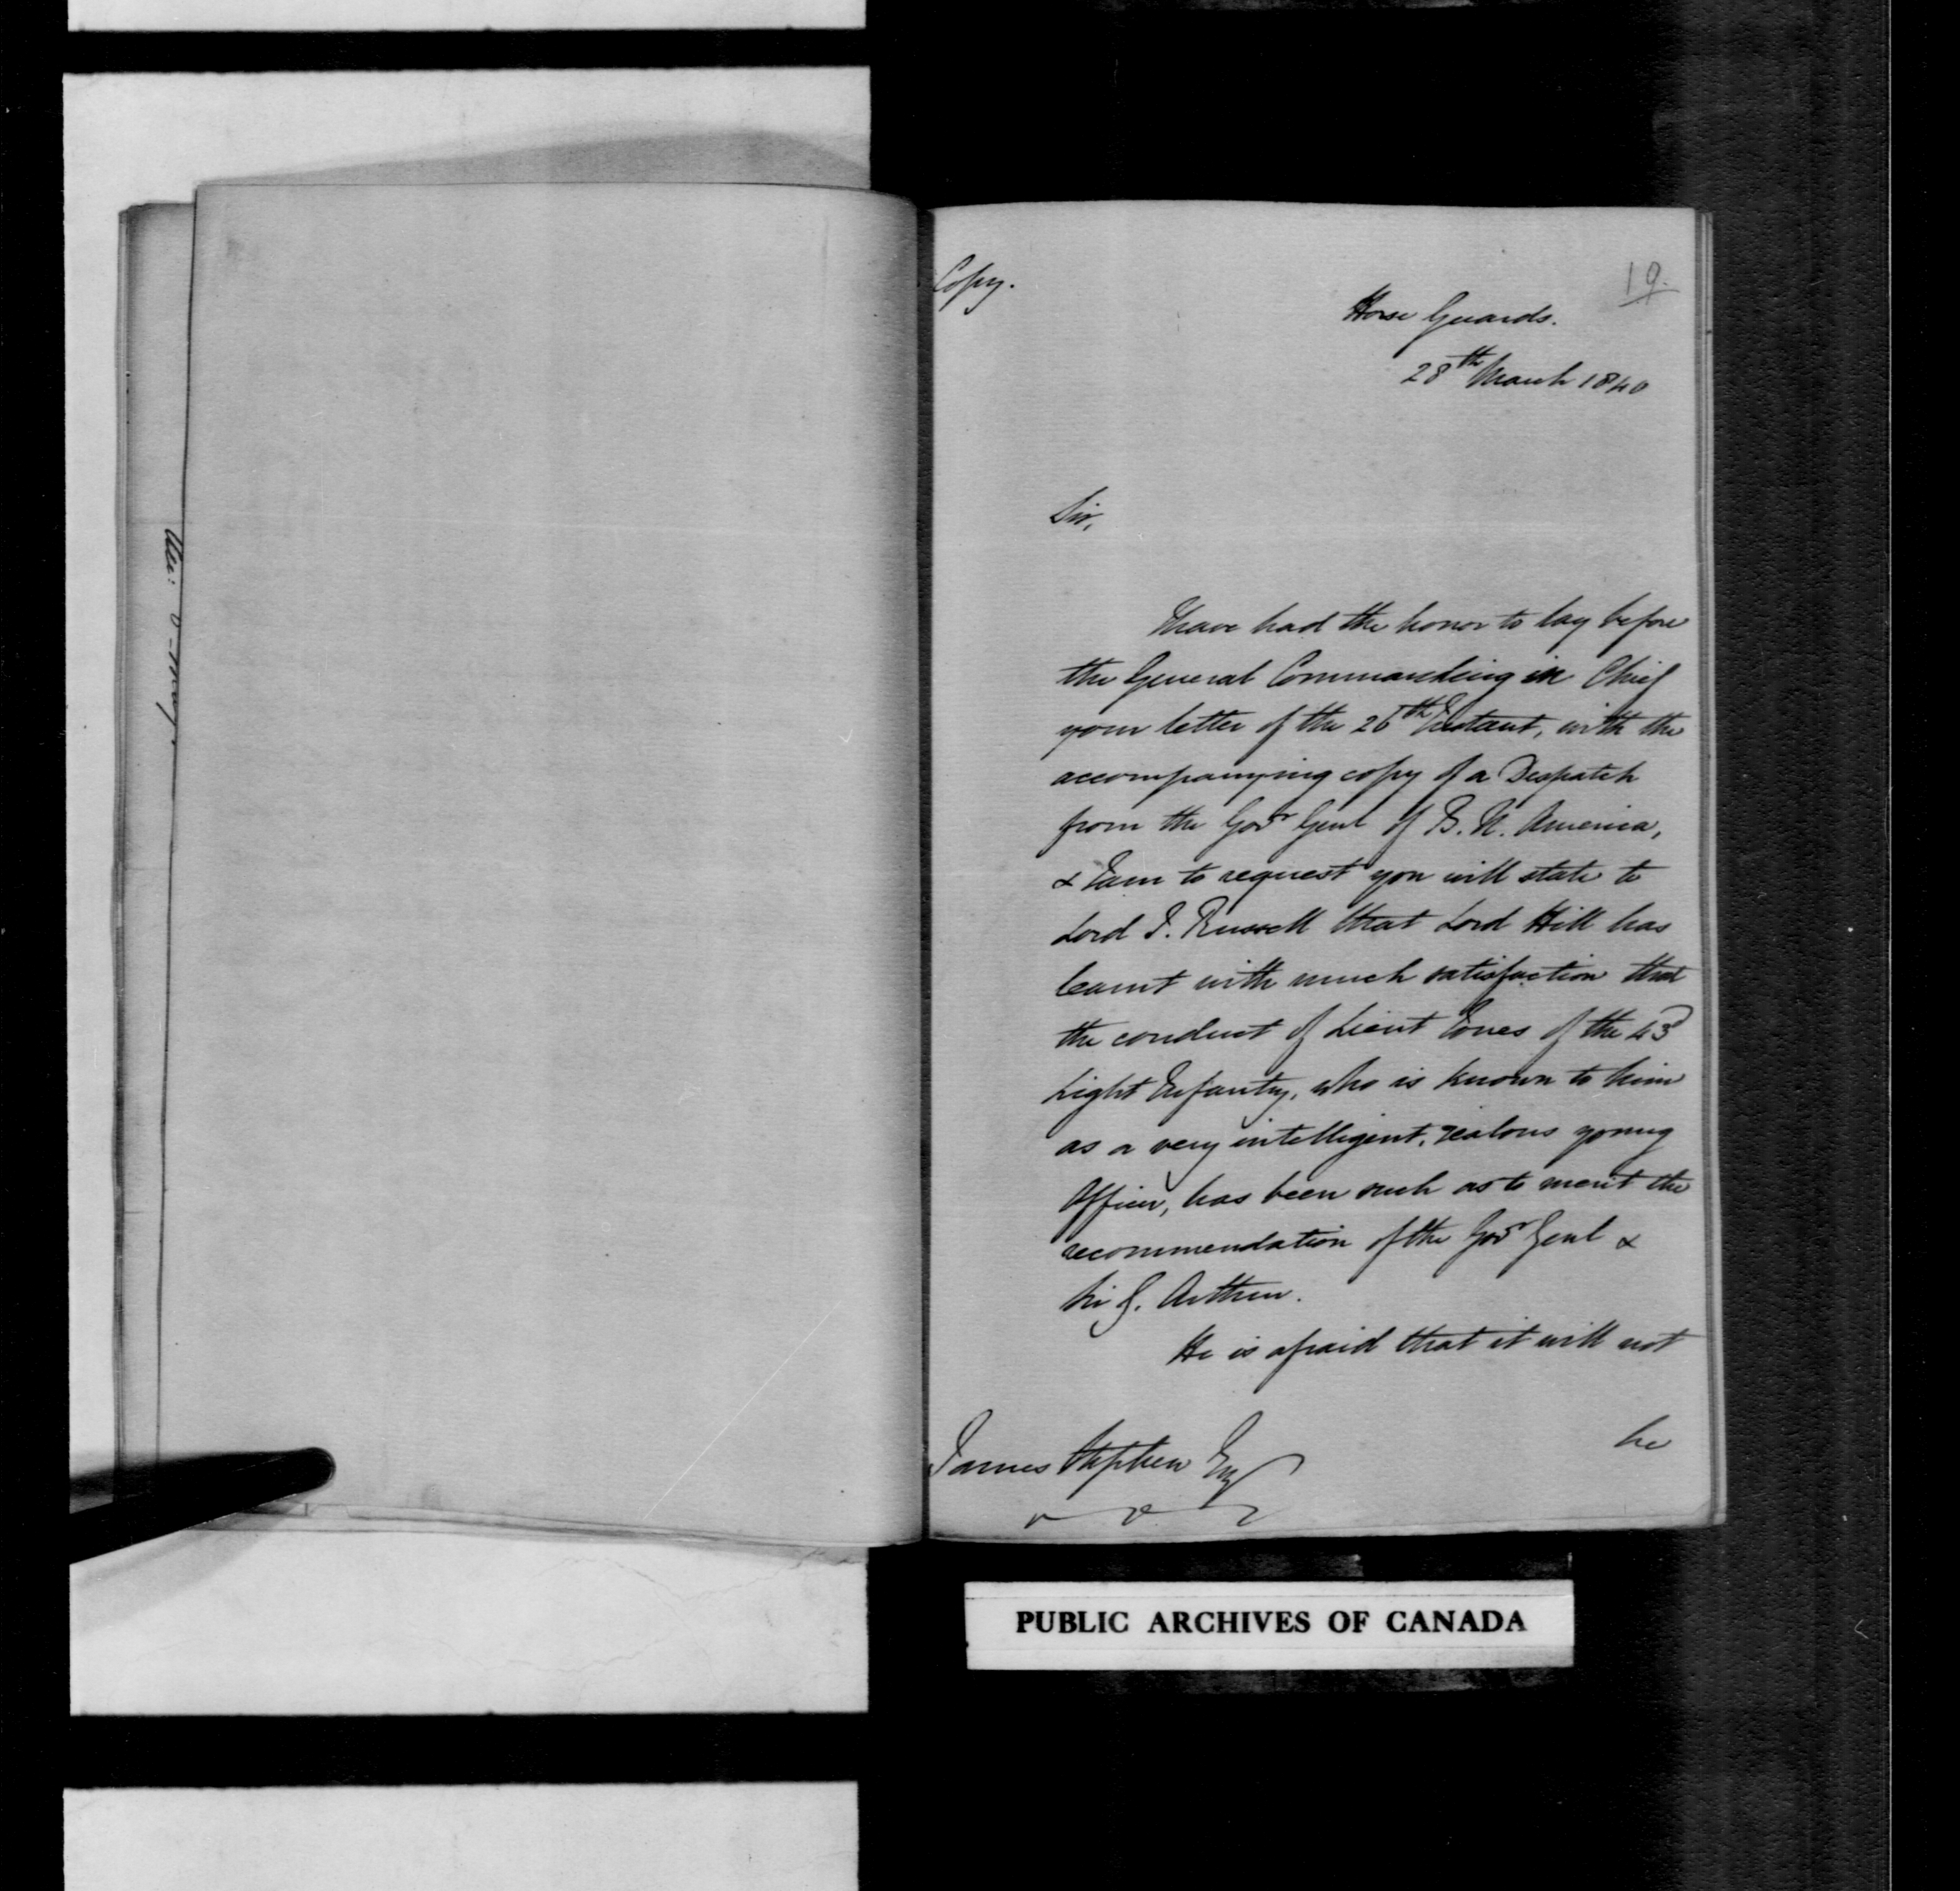 Copy.
19.
Horse Guards.
28th March 1840
Sir,
I have had the honor to lay before
the General Commanding in Chief
your letter of the 26th Instant, with the
accompanying copy of a Despatch
from the Govr Genl of B. N. America,
& I am to request you will state to
Lord J. Russell that Lord Hill has
learnt with much satisfaction that
the conduct of Lieut Jones of the 43d
Light Infantry, who is known to him
as a very intelligent, zealous young
Officer, has been such as to merit the
recommendation of the Govr Genl &
Sir G. Arthur.
He is afraid that it will not
be
James Stephen Esq
PUBLIC ARCHIVES OF CANADA